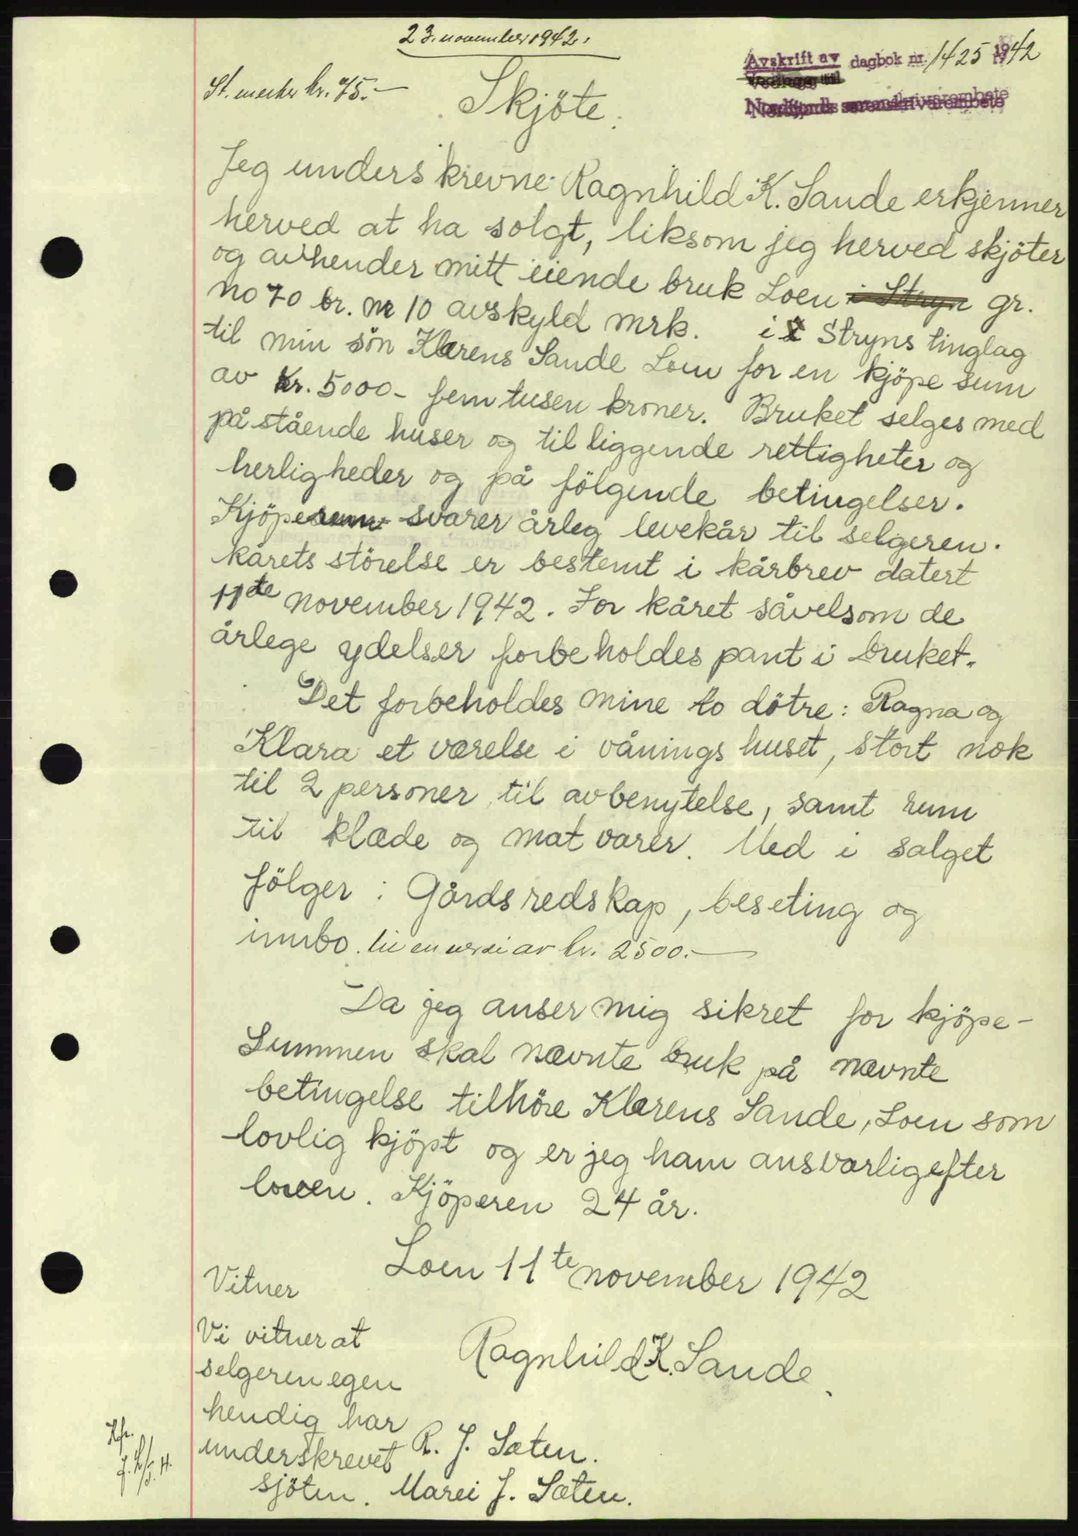 23. november 1942.
Avskrift av dagbok nr. 1425 1942
St. merker kr. 75.-
Skjöte.
Jeg underskrevne Ragnhild K. Sande erkjenner
herved at ha solgt, liksom jeg herved skjöter
og avhender mitt eiende bruk Loen i Stryn gr.
no 70 br. nr 10 avskyld mrk. i Stryns tinglag
til min sön Klarens Sande Loen for en kjöpe sum
av Kr. 5000- fem tusen kroner. Bruket selges med
på stående huser og til liggende rettigheter og
herligheder og på fölgende betingelser.
Kjöpesum svarer årleg levekår til selgeren.
kårets störelse er bestemt i kårbrev datert
11te november 1942. For kåret såvelsom de
årlege ydelser forbeholdes pant i bruket.
Det forbeholdes mine to dötre: Ragna og
Klara et værelse i vånings huset, stort nok
til 2 personer til avbenytelse, samt rum
til klæde og mat varer. Med i salget
fölger: Gårdsredskap, beseting og
innbo. til en verdi av kr. 2500.-
Da jeg anser mig sikret for kjöpe-
Summen skal nævnte bruk på nævnte
betingelse tilhöre Klarens Sande, Loen som
lovlig kjöpt og er jeg ham ansvarlig efter
loven. Kjöperen 24 år.
Loen 11te november 1942
Vitner
Vi vitner at
Ragnhild K. Sande.
selgeren egen
hendig har
underskrevet R. J. Sæten.
sjöten. Marei J. Sæten.